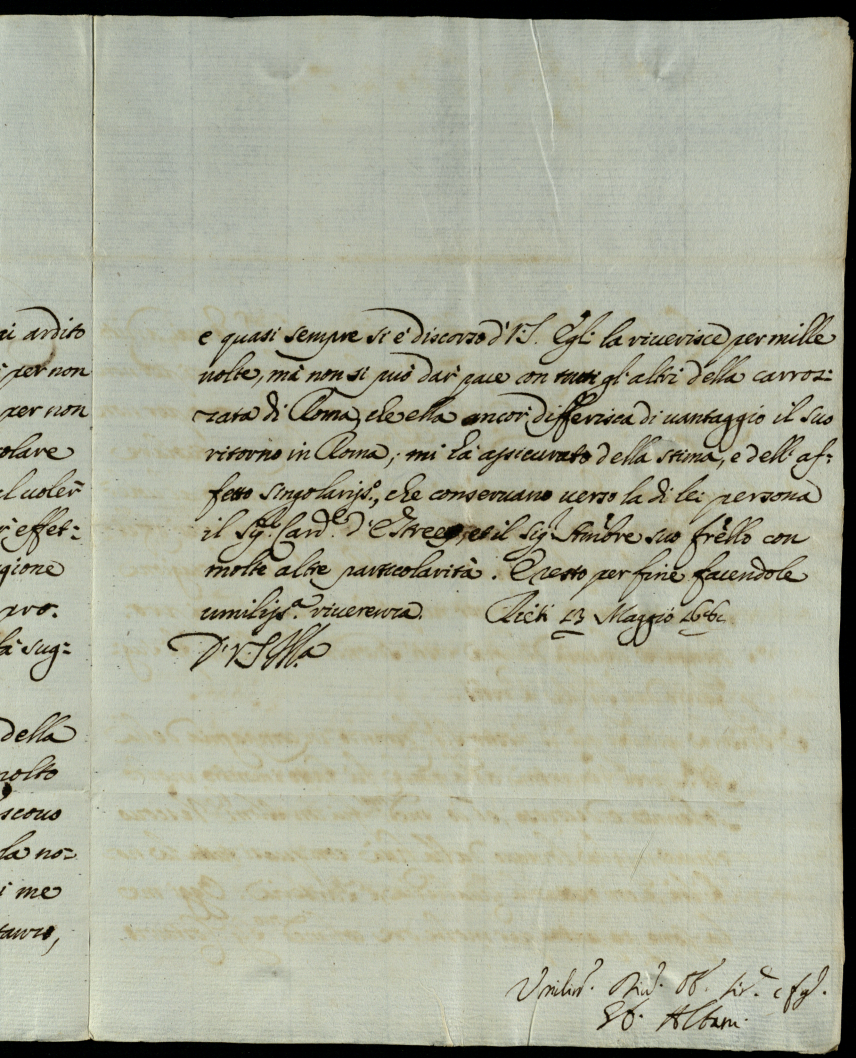 ai ardito
per non
per non
olare
el uoler
r effet=
gione
pro=
fà sug=
della
molto
scono
la no=
i me
tauro,
e quasi sempre si è discorso d' V.S. Egli la riuerisce per mille
uolte, mà non si può dar pace con tutti gl' altri della carroz=
zata di Roma, che ella ancor differisca di uantaggio il suo
ritorno in Roma; mi hà assicurato della stima, e dell' af=
fetto singolariss.º, che conseruano uerso la di lei persona
il Sig.r Card.e d' Estrees, et il Sig.r Amb.re suo frello con
molte altre particolarità. E resto per fine facendole
umiliss.a riuerenza. Rieti 13 Maggio
D' V.S. Ill.ma
Umiliss.
Albani.